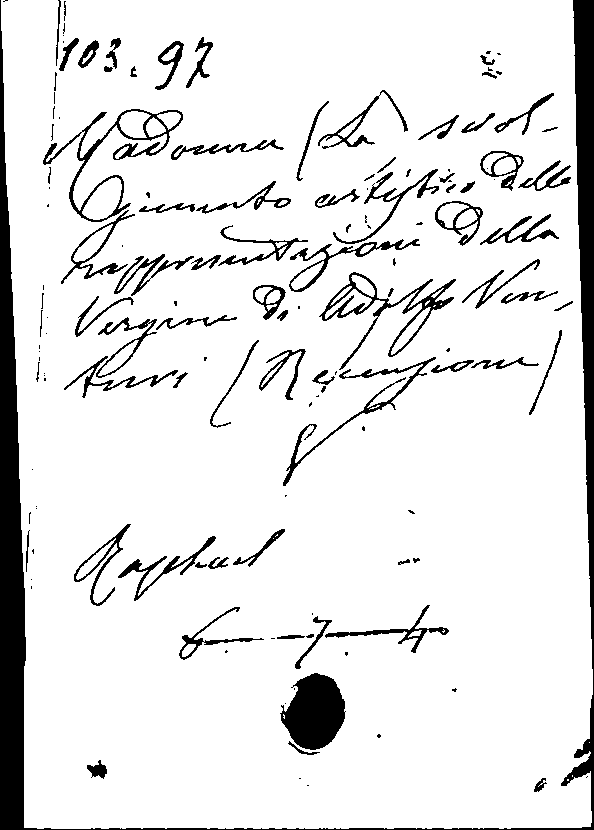 103. 97
Madonna (La) svol-
gimento artistico delle
rappresentazioni della
Vergine di Adolfo Ven-
turi (Recensione)
Raphael
6 — 7 — 4